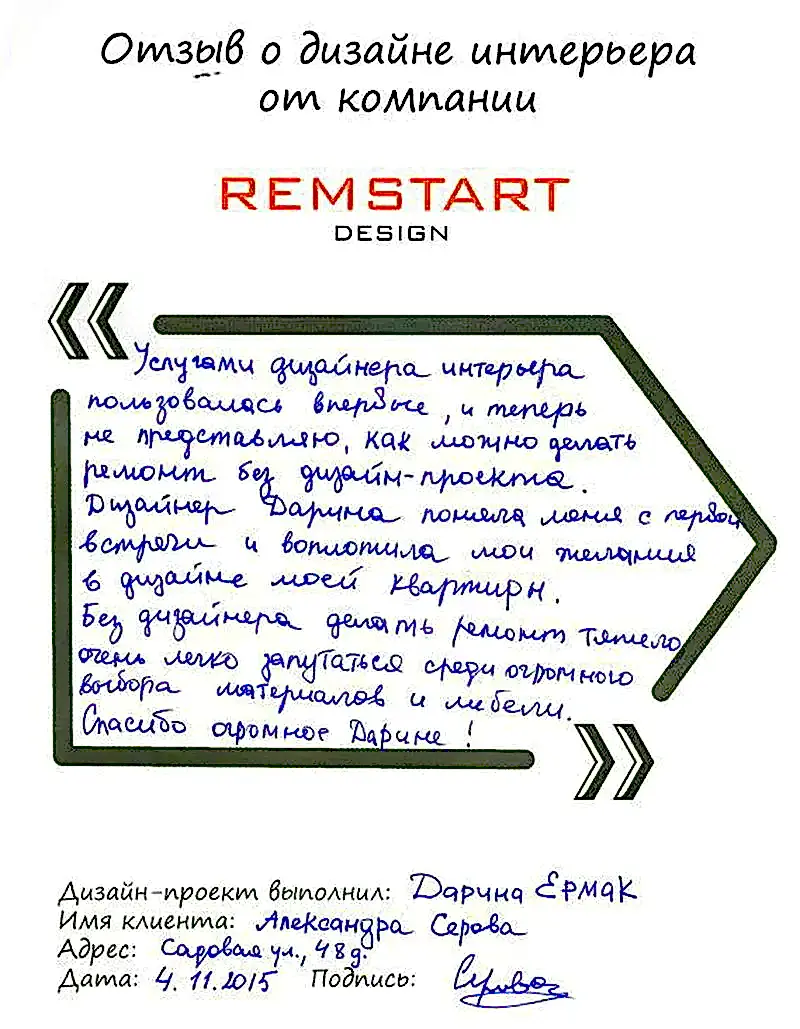 Отзыв о дизайне интерьера
от компании
REMSTART
DESIGN
Услугами дизайнера интерьера
пользовалась впервые, и теперь
не представляю, как можно делать
ремонт без дизайн-проекта.
Дизайнер Дарина поняла меня с первой
встречи и воплотила мои желания
в дизайне моей квартиры.
Без дизайнера делать ремонт тяжело,
очень легко запутаться среди огромного
выбора материалов и мебели.
Спасибо огромное Дарине!
Дизайн-проект выполнил: Дарина Ермак
Имя клиента: Александра Серова
Адрес: Садовая ул., 48д.
Дата: 4.11.2015 Подпись: